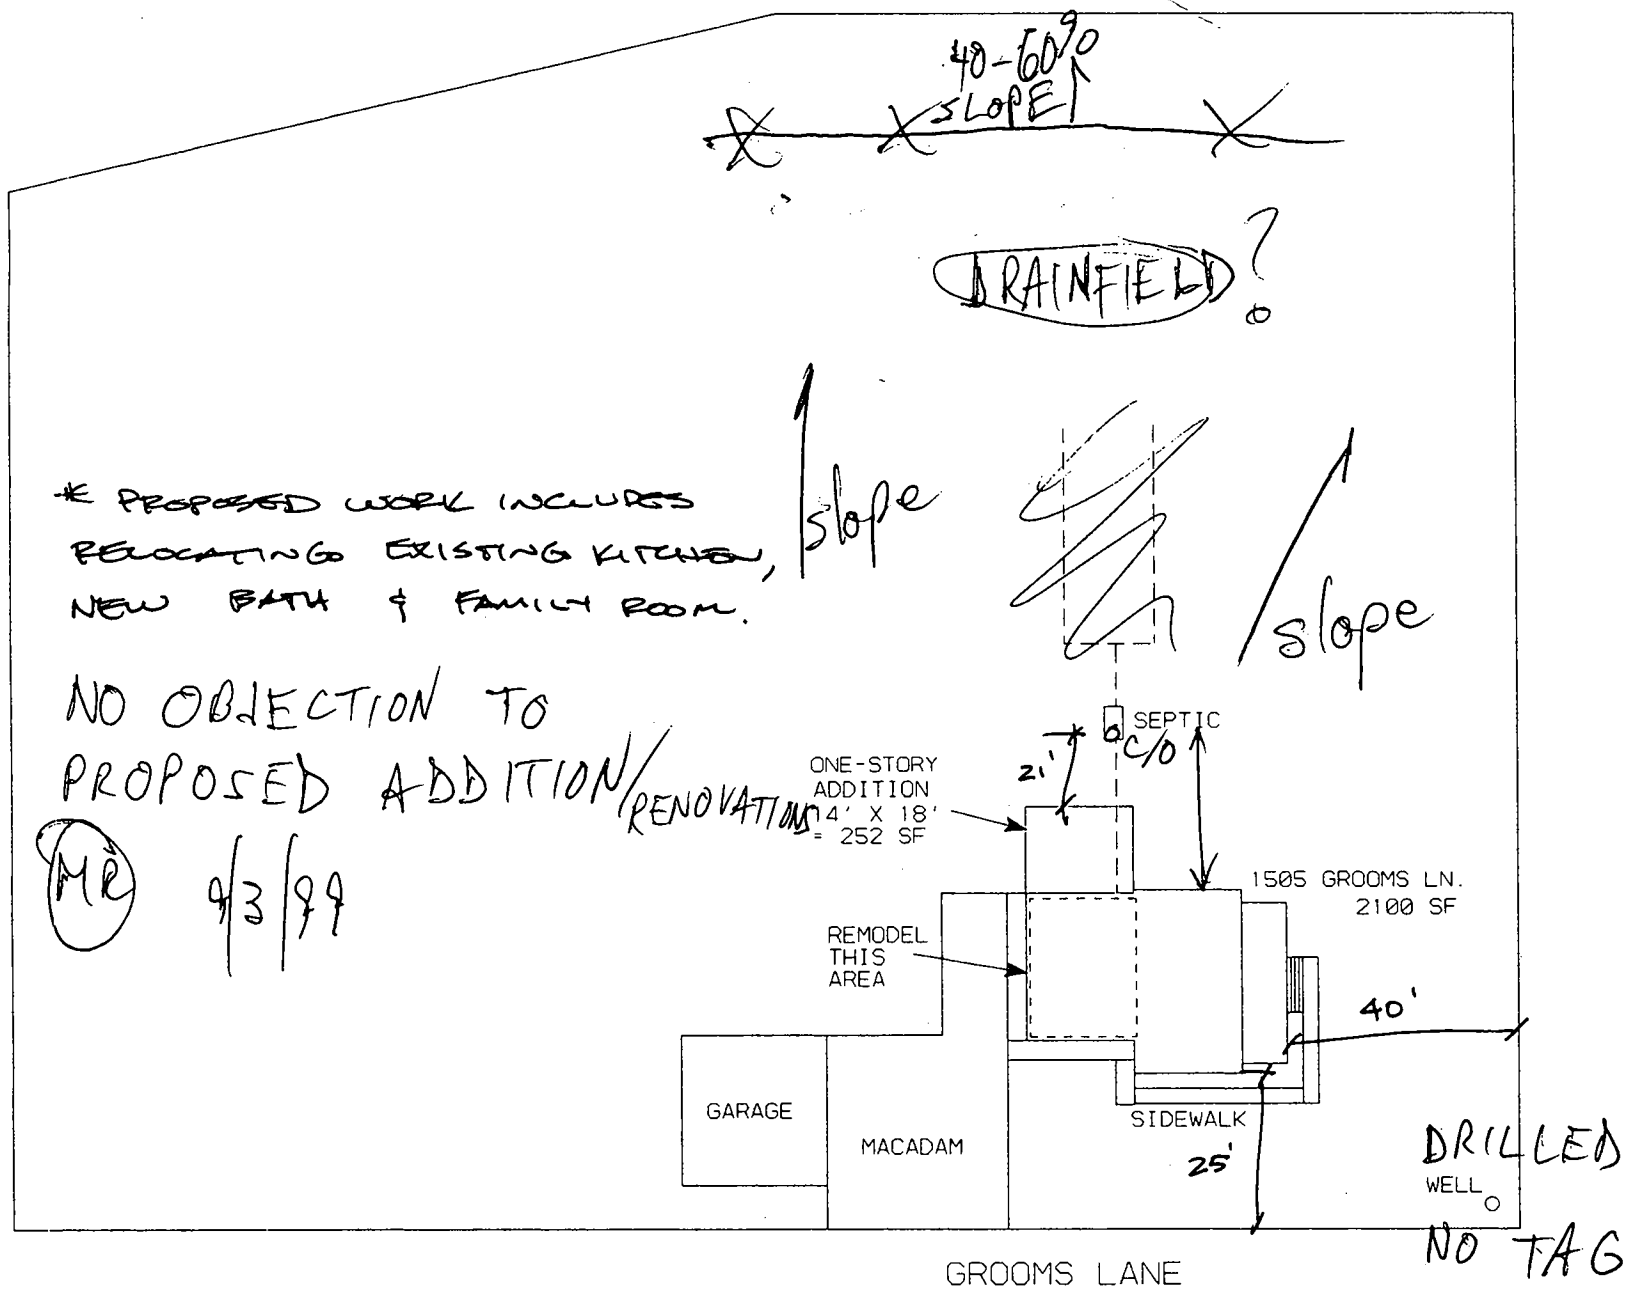 40-60%
SLOPE
DRAINFIELD ?
slope
slope
* PROPOSED WORK INCLUDES
RELOCATING EXISTING KITCHEN,
NEW BATH & FAMILY ROOM.
NO OBJECTION TO
PROPOSED ADDITION/
RENOVATIONS
MR 9/3/99
SEPTIC
C/O
21'
ONE-STORY
ADDITION
14' X 18'
= 252 SF
1505 GROOMS LN.
2100 SF
REMODEL
THIS
AREA
40'
GARAGE
MACADAM
SIDEWALK
25'
DRILLED
WELL
NO TAG
GROOMS LANE